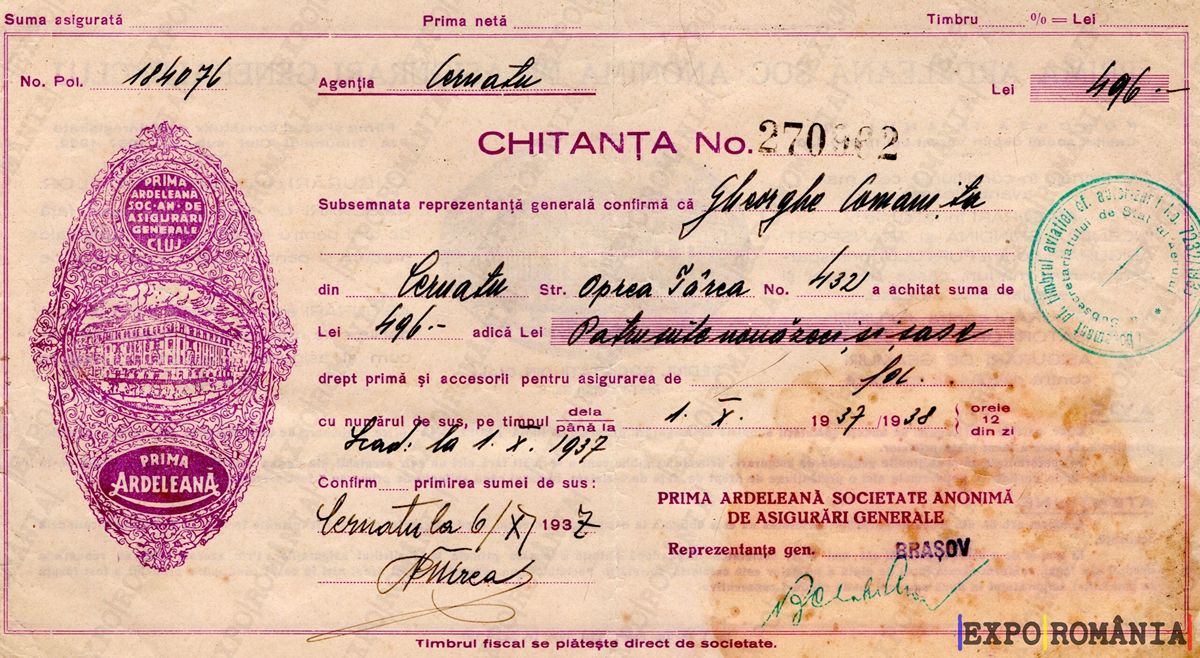 Suma asigurată Prima netă Timbru % = Lei
No. Pol. 184076 Agenția Cernatu Lei 496.—
CHITANȚA No. 270962
Subsemnata reprezentanță generală confirmă că Gheorghe Comanița
din Cernatu Str. Oprea Târca No. 432 a achitat suma de
Lei 496.— adică Lei Patrusute nouăzeci și șase
drept primă și accesorii pentru asigurarea de foc.
cu numărul de sus, pe timpul dela 1. X. 1937/1938 orele
până la 12
din zi
Scad: la 1. X 1937
Confirm primirea sumei de sus:
Cernatu la 6/XI 1937
PRIMA ARDELEANĂ SOCIETATE ANONIMĂ
DE ASIGURĂRI GENERALE
Reprezentanța gen. BRAȘOV
Timbrul fiscal se plătește direct de societate.
PRIMA
ARDELEANA
SOC·AN·DE
ASIGURĂRI
GENERALE
CLUJ
PRIMA
ARDELEANĂ
pl. timbrul aviației cf. autorizării
Subsecretariatului de Stat al Aerului
EXPO ROMÂNIA